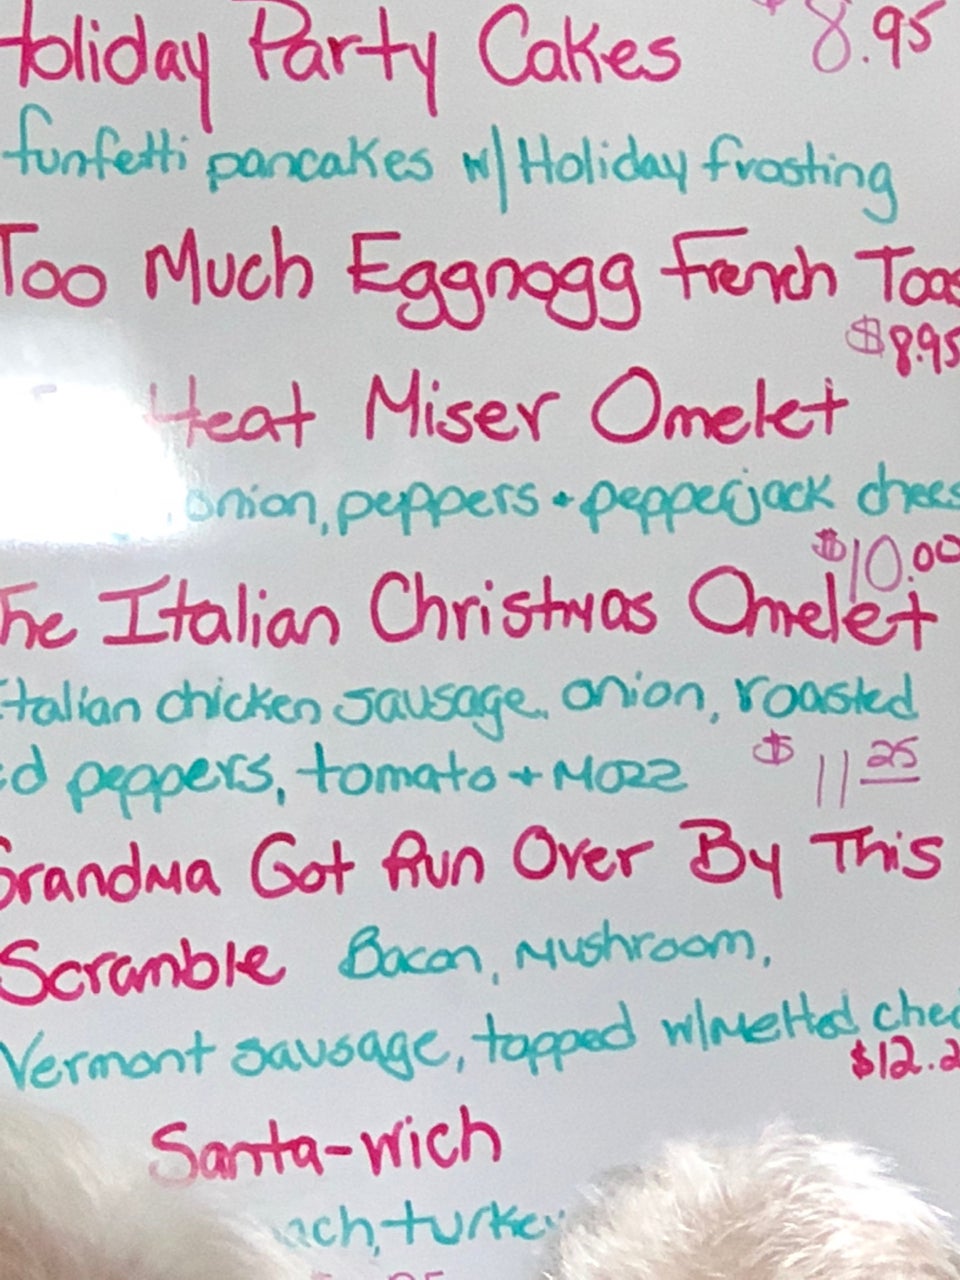 Holiday Party Cakes $8.95
funfetti pancakes w/ Holiday frosting
Too Much Eggnogg French Toas
$8.95
Heat Miser Omelet
, onion, peppers + pepperjack chees
$10.00
The Italian Christmas Omelet
Italian chicken sausage, onion, roasted
ed peppers, tomato + Mozz $11 25
Grandma Got Run Over By This
Scramble Bacon, Mushroom,
Vermont sausage, topped w/ Melted chee
$12.2
Santa-wich
ach, turkey